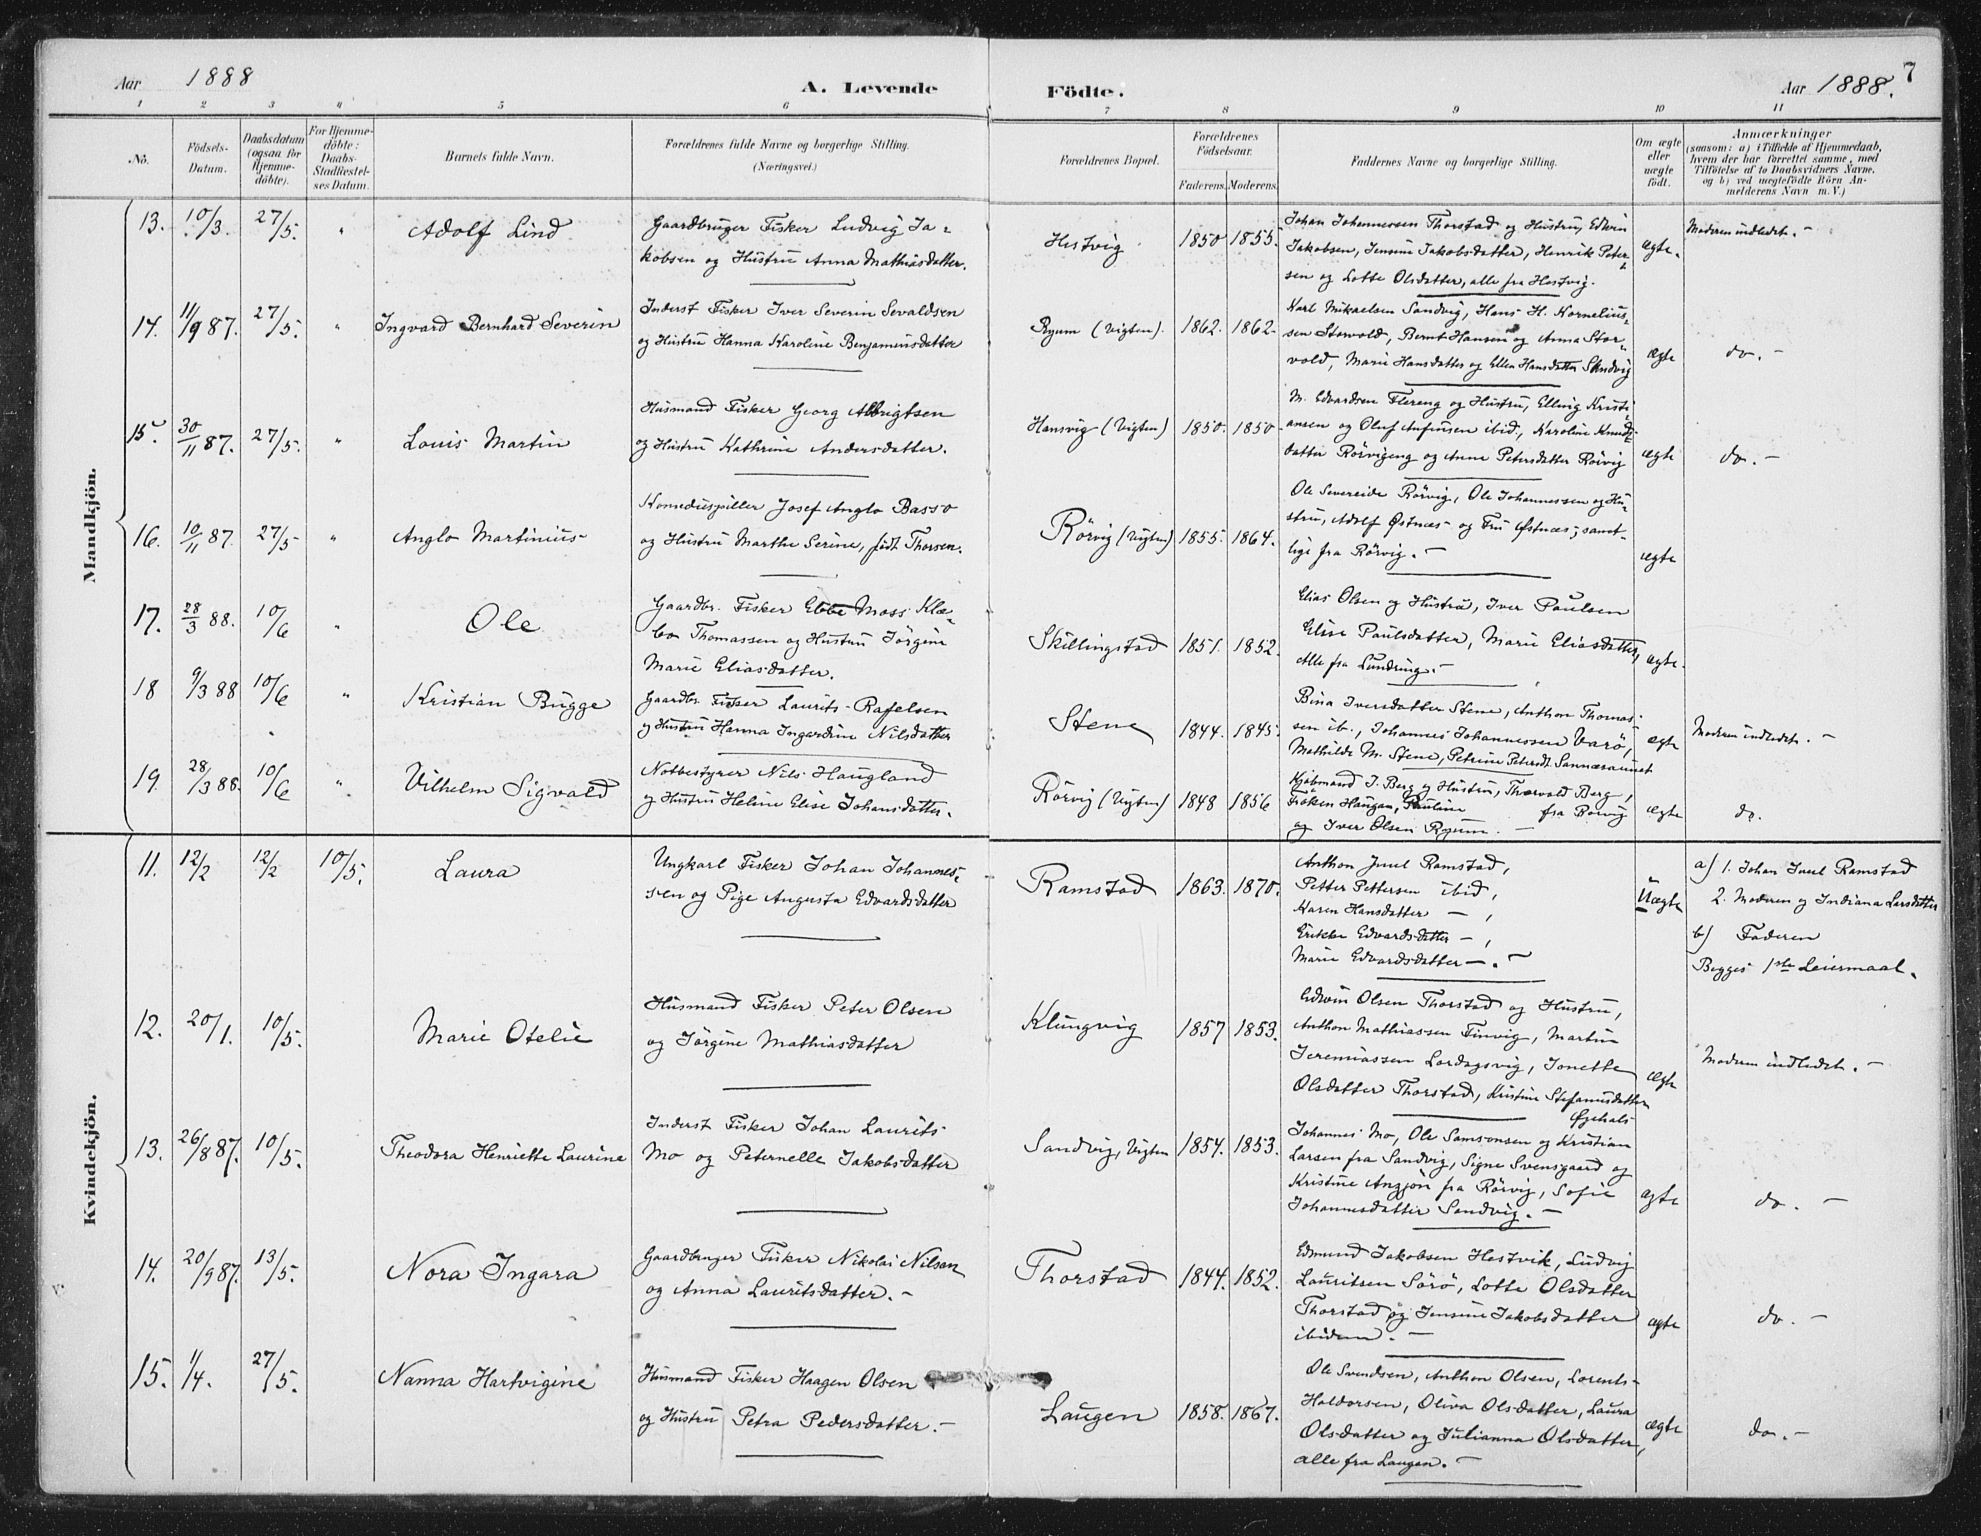 Aar 1888
A. Levende
Födte.
Aar 1888.
7
1 2 3 4 5 6 7 8 9 10 11
No.
Födsels-
Datum.
Daabsdatum
(ogsaa for
Hjemme-
döbte).
For Hjemme-
döbte:
Daabs-
Stadfæstel-
ses Datum.
Barnets fulde Navn.
Forældrenes fulde Navne og borgerlige Stilling.
(Næringsvei.)
Forældrenes Bopæl.
Forældrenes
Födselsaar.
Faderens. Moderens.
Faddernes Navne og borgerlige Stilling.
Om ægte
eller
uægte
födt.
Anmærkninger
(saasom: a) i Tilfælde af Hjemmedaab,
hvem der har forrettet samme, med
Tilföielse af to Daabsvidners Navne,
og b) ved uægtefödte Börn An-
melderens Navn m. V.)
Mandkjön.
13. 10/3. 27/5. " Adolf Lind
Gaardbruger Fisker Ludvig Ja-
kobsen og Hustru Anna Mathiasdatter.
Hestvig 1850 1855.
Johan Johannessen Thorstad og Hustru, Edvin
Jakobsen, Jensine Jakobsdatter, Henrik Peter-
sen og Lotte Olsdatter, alle fra Hestvig.
ægte. Moderen indledet. -
14. 11/9 87. 27/5. " Ingvard Bernhard Severin
Inderst Fisker Iver Severin Sevaldsen
og Hustru Hanna Karoline Benjaminsdatter
Ryum (Vigten). 1862. 1862.
Karl Mikaelsen Sandvig, Hans H. Kornelius-
sen Storvold, Bernt Hansen og Anna Stor-
vold, Marie Hansdatter og Ellen Hansdatter Sandvig
ægte do. -
15. 30/11 87. 27/5. " Louis Martin
Husmand Fisker Georg Albrigtsen
og Hustru Kathrine Andersdatter.
Hansvig (Vigten) 1850. 1850
M. Edvardsen Flereng og Hustru, Elling Kristi-
ansen og Oluf Anfinsen ibid., Karoline Knuds-
datter Rörvigeng og Anne Petersdatter Rörvig
ægte do. -
16. 10/11 87. 27/5 " Anglo Martinius
Komediespiller Josef Anglo Basso
og Hustru Marthe Serine, födt Thorsen.
Rörvig (Vigten) 1855. 1864.
Ole Severeide Rörvig, Ole Johannessen og Hu-
stru, Adolf Østnæs og Fru Østnæs; samt-
lige fra Rörvig. -
ægte
17. 28/3 88. 10/6 " Ole
Gaardbr. Fisker Ebbe Moss Klæ-
bo Thomassen og Hustru Jörgine
Marie Eliasdatter.
Skillingstad 1851. 1852.
Elias Olsen og Hustru, Iver Paulsen
Elise Paulsdatter, Marie Eliasdatter,
Alle fra Lundring. -
ægte.
18 9/3 88 10/6 " Kristian Bugge
Gaardbr. Fisker Laurits Rafelsen
og Hustru Hanna Ingardine Nilsdatter
Stene 1844. 1845.
Bina Iversdatter Stene, Anthon Thomas-
sen ib., Johannes Johannessen Varö,
Mathilde M. Stene, Petrine Petersdt. Sannæsaunet
ægte Moderen indledet. -
19. 28/3 88. 10/6 " Vilhelm Sigvald
Notbestyrer Nils Haugland
og Hustru Heline Elise Johansdatter.
Rörvig (Vigten) 1848 1856
Kjøbmand J. Berg og Hustru, Thorvald Berg,
Fröken Haugan, Pauline fra Rörvig
og Iver Olsen Ryum. -
ægte do.
Kvindekjön.
11. 12/2 12/2 10/5. Laura
Ungkarl Fisker Johan Johannes-
sen og Pige Augusta Edvardsdatter
Ramstad 1863. 1870.
Anthon Juul Ramstad,
Petter Pettersen ibid,
Karen Hansdatter - ,
Erikke Edvardsdatter - ,
Marie Edvardsdatter - . -
Uægte
a) 1. Johan Juul Ramstad
2. Moderen og Indiana Larsdatter
b) Faderen
Begges 1ste Leiermaal.
12. 20/1. 10/5. Marie Otelie
Husmand Fisker Peter Olsen
og Jörgine Mathiasdatter
Klungvig 1857 1853.
Edvin Olsen Thorstad og Hustru,
Anthon Mathiassen Finvig, Martin
Jeremiassen Lordagsvig, Jonette
Olsdatter Thorstad, Kristine Stefanusdatter
Øjehals
ægte Moderen indledet. -
13. 26/8 87. 10/5. Theodora Henriette Laurine
Inderst Fisker Johan Laurits
Mo og Peternelle Jakobsdatter
Sandvig, Vigten 1854. 1853.
Johannes Mo, Ole Samsonsen og Kristian
Larsen fra Sandvig, Signe Svensgaard og
Kristine Angjön fra Rörvig, Sofie
Johannesdatter Sandvig. -
ægte do. -
14. 20/9 87. 13/5. Nora Ingara
Gaardbruger Fisker Nikolai Nilsen
og Anna Lauritsdatter. -
Thorstad 1844. 1852.
Edmund Jakobsen Hestvik, Ludvig
Lauritsen Sörö, Lotte Olsdatter
Thorstad og Jensine Jakobsdatter
ibidem. -
ægte do. -
15. 1/4. 27/5. Nanna Hartvigine
Husmand Fisker Haagen Olsen
og Hustru Petra Pedersdatter. -
Laugen 1858. 1867.
Ole Svendsen, Anthon Olsen, Lorents
Haldorsen, Oliva Olsdatter, Laura
Olsdatter og Julianna Olsdatter,
alle fra Laugen. -
ægte do. -